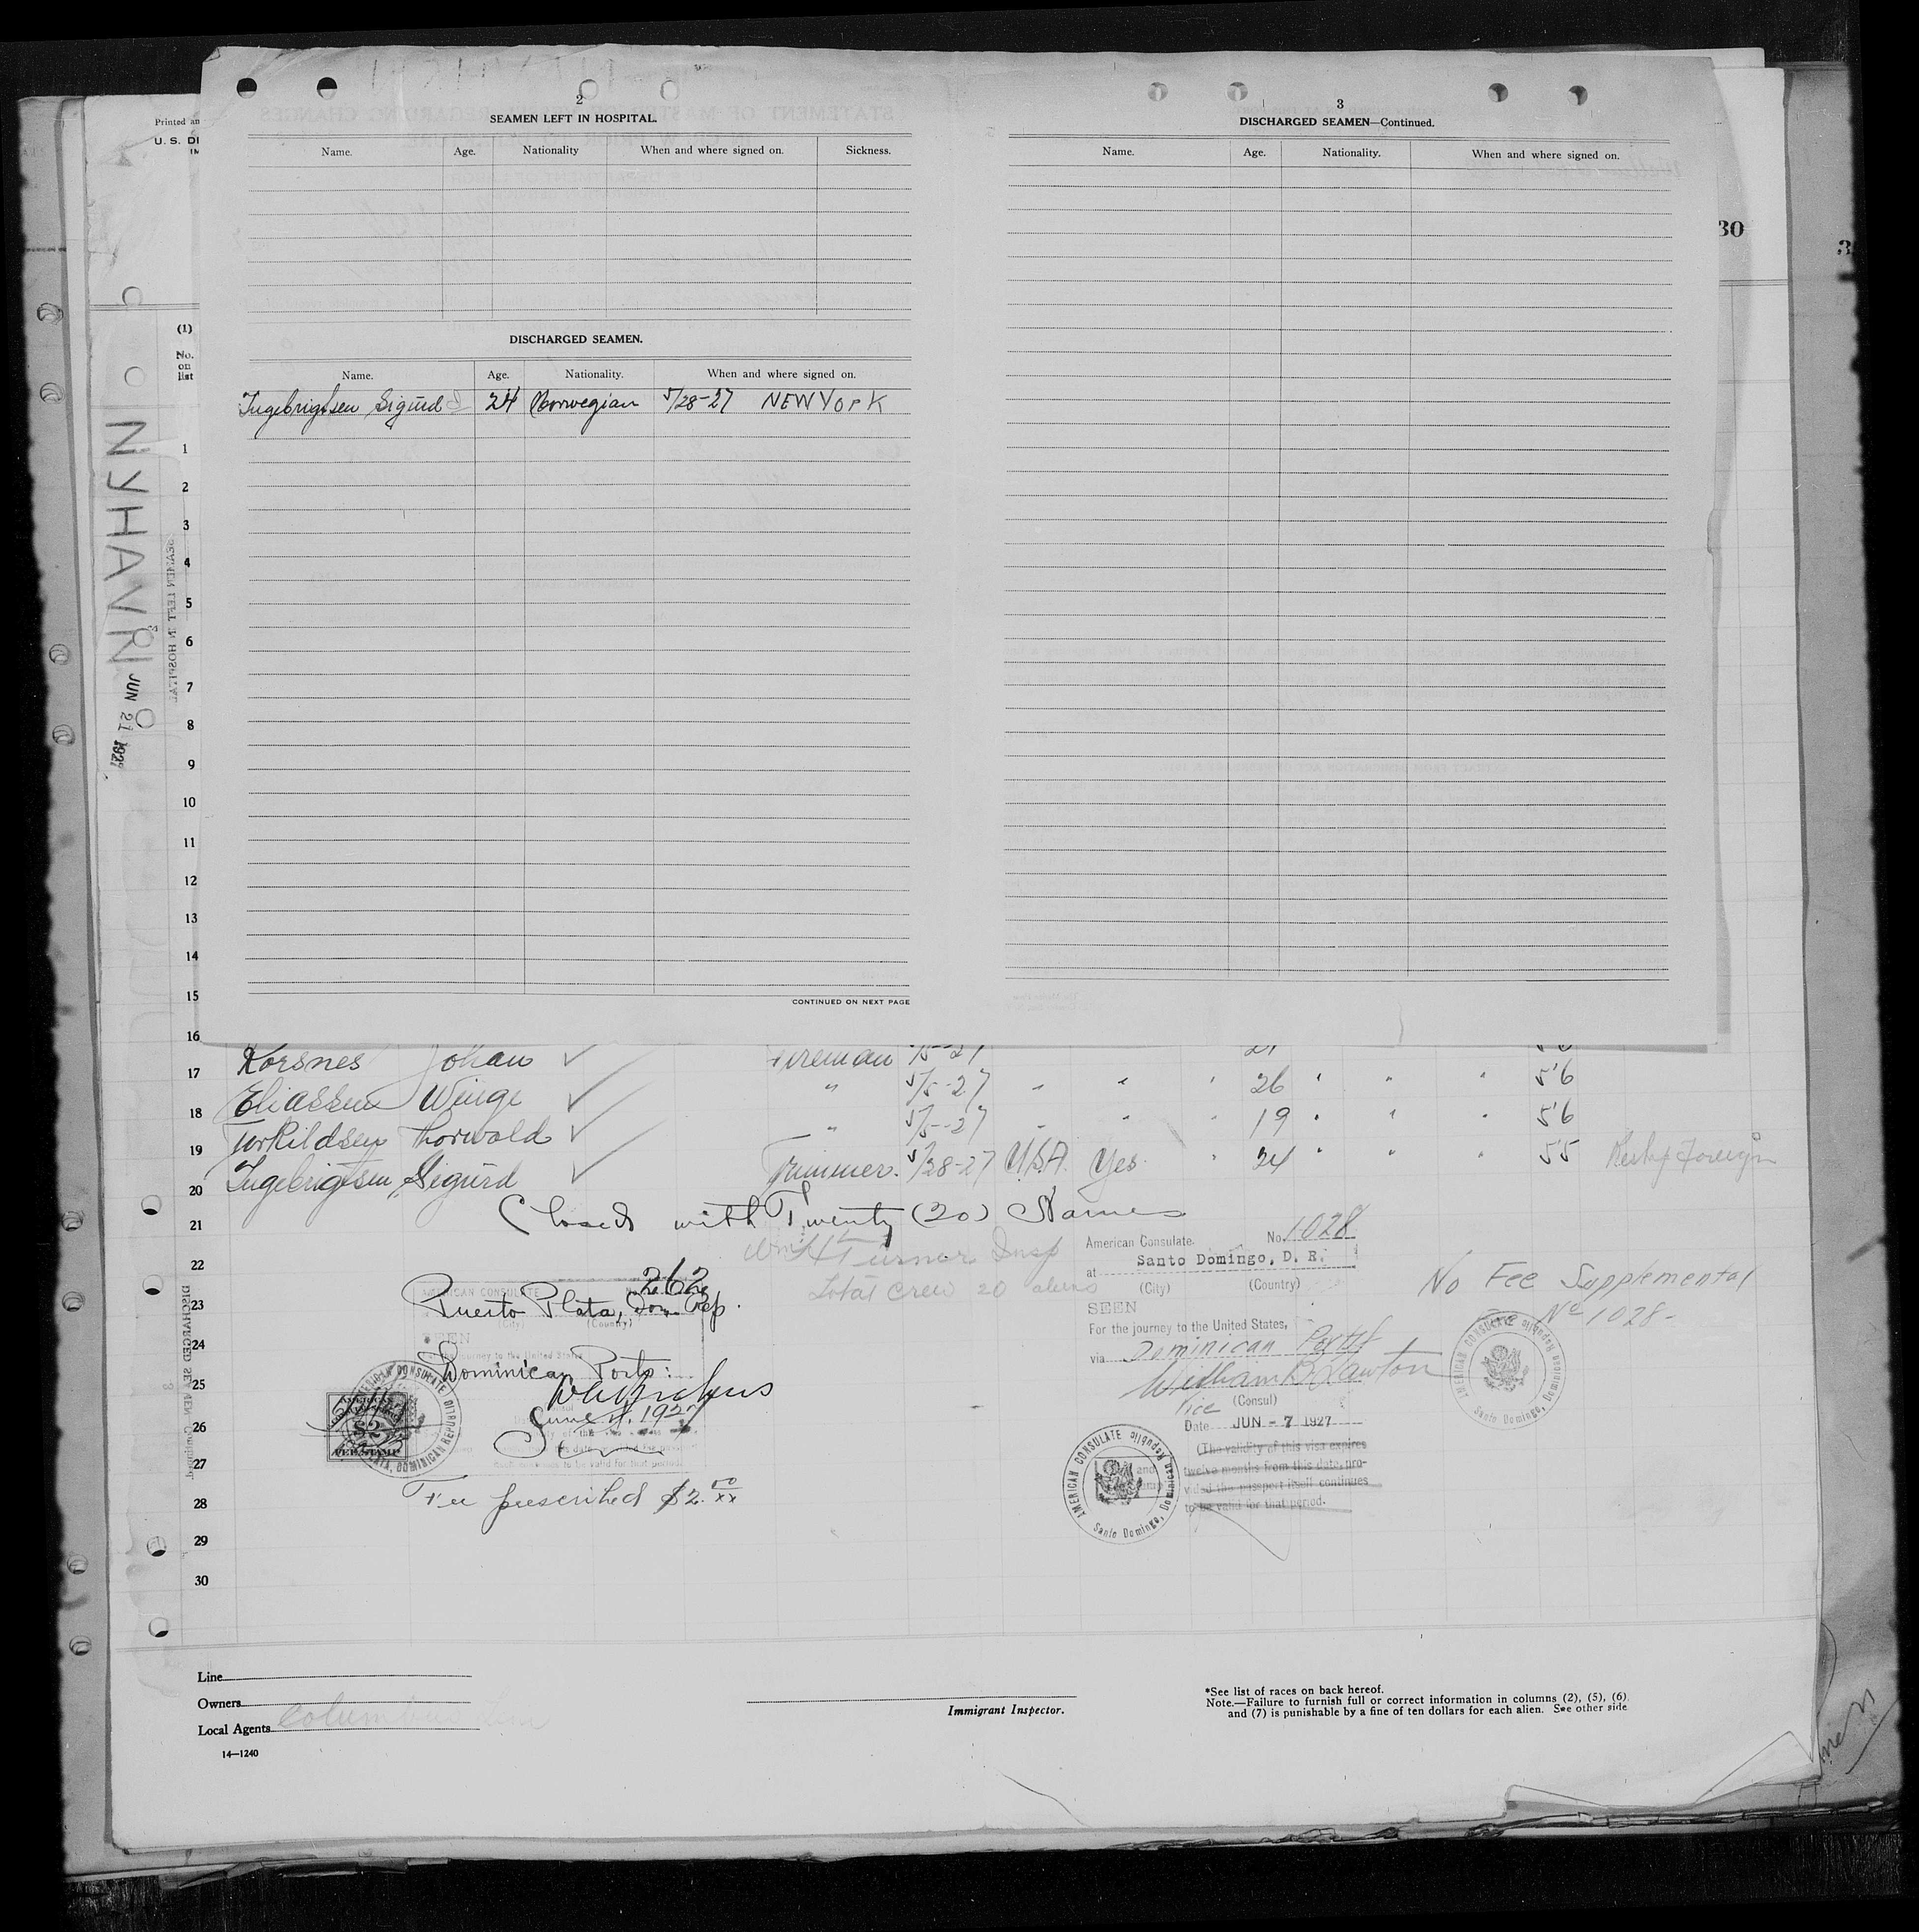 2
SEAMEN LEFT IN HOSPITAL.
Name. Age. Nationality When and where signed on. Sickness.
DISCHARGED SEAMEN.
Name. Age. Nationality. When and where signed on.
Ingebrigtsen Sigurd 24 Norwegian 5/28-27 NEW YORK
CONTINUED ON NEXT PAGE
3
DISCHARGED SEAMEN—Continued.
Name. Age. Nationality. When and where signed on.
30
3
Printed an
U. S. DE
IM
(1)
No.
on
list
NYHAVN
JUN 21 1927
SEAMEN LEFT IN HOSPITAL
1
2
3
4
5
6
7
8
9
10
11
12
13
14
15
16
17 Korsnes Johan Fireman 5/5-27 21
18 Eliassen Winge " 5/5-27 " " " 26 " " " 5'6
19 Torkildsen Thorwald " 5/5-27 " " " 19 " " " 5'6
20 Ingebrigtsen, Sigurd Trimmer. 5/28-27 U.S.A. Yes " 24 " " " 5'5
21 Closed with Twenty (20) Names
22
23
24
25
26
27
28
29
30
Turner Insp
Total crew 20 aliens
AMERICAN CONSULATE
No. 262
Puerto Plata, Dom. Rep.
(City) (Country)
SEEN
For the journey to the United States
Dominican Ports:
June 4, 1927
$2
FEE STAMP
Fee prescribed $2.00/xx
American Consulate. No. 1028
at Santo Domingo, D. R.
(City) (Country)
SEEN
For the journey to the United States,
via Dominican Ports
William B Lawton
Vice (Consul)
Date JUN - 7 1927
(The validity of this visa expires
twelve months from this date, pro-
vided the passport itself continues
to be valid for that period.
AMERICAN CONSULATE
Santo Domingo, Dominican Republic
No Fee Supplemental
No 1028-
AMERICAN CONSULATE
Santo Domingo, Dominican Republic
DISCHARGED SEAMEN—Continued.
Line
Owners
Local Agents Columbus Line
14—1240
Immigrant Inspector.
*See list of races on back hereof.
Note.—Failure to furnish full or correct information in columns (2), (5), (6)
and (7) is punishable by a fine of ten dollars for each alien. See other side